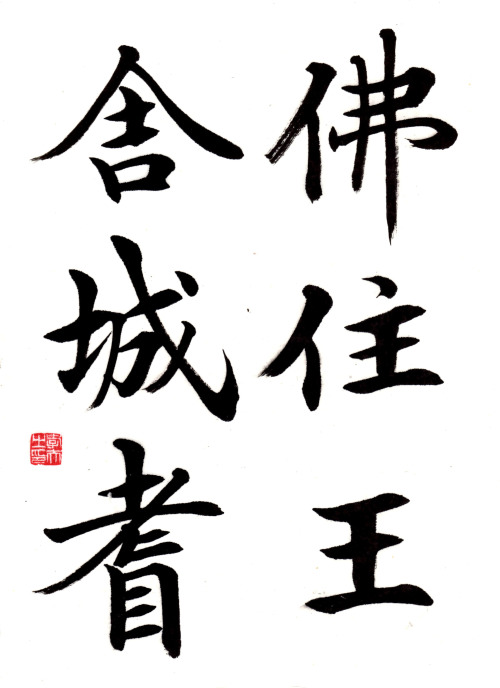 佛住王
舎城耆